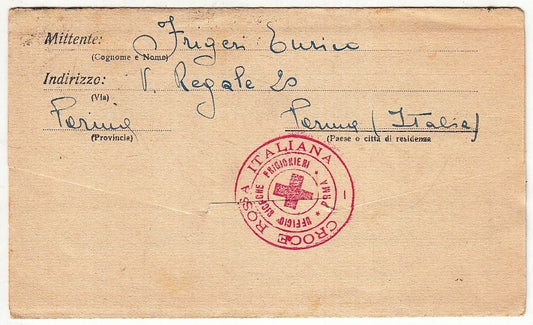 Mittente: Frigeri Enrico
(Cognome e Nome)
Indirizzo: V. Regale 20
(Via)
Parma Parma (Italia)
(Provincia) (Paese o città di residenza
CROCE ROSSA ITALIANA —
UFFICIO RICERCHE PRIGIONIERI * PARMA *